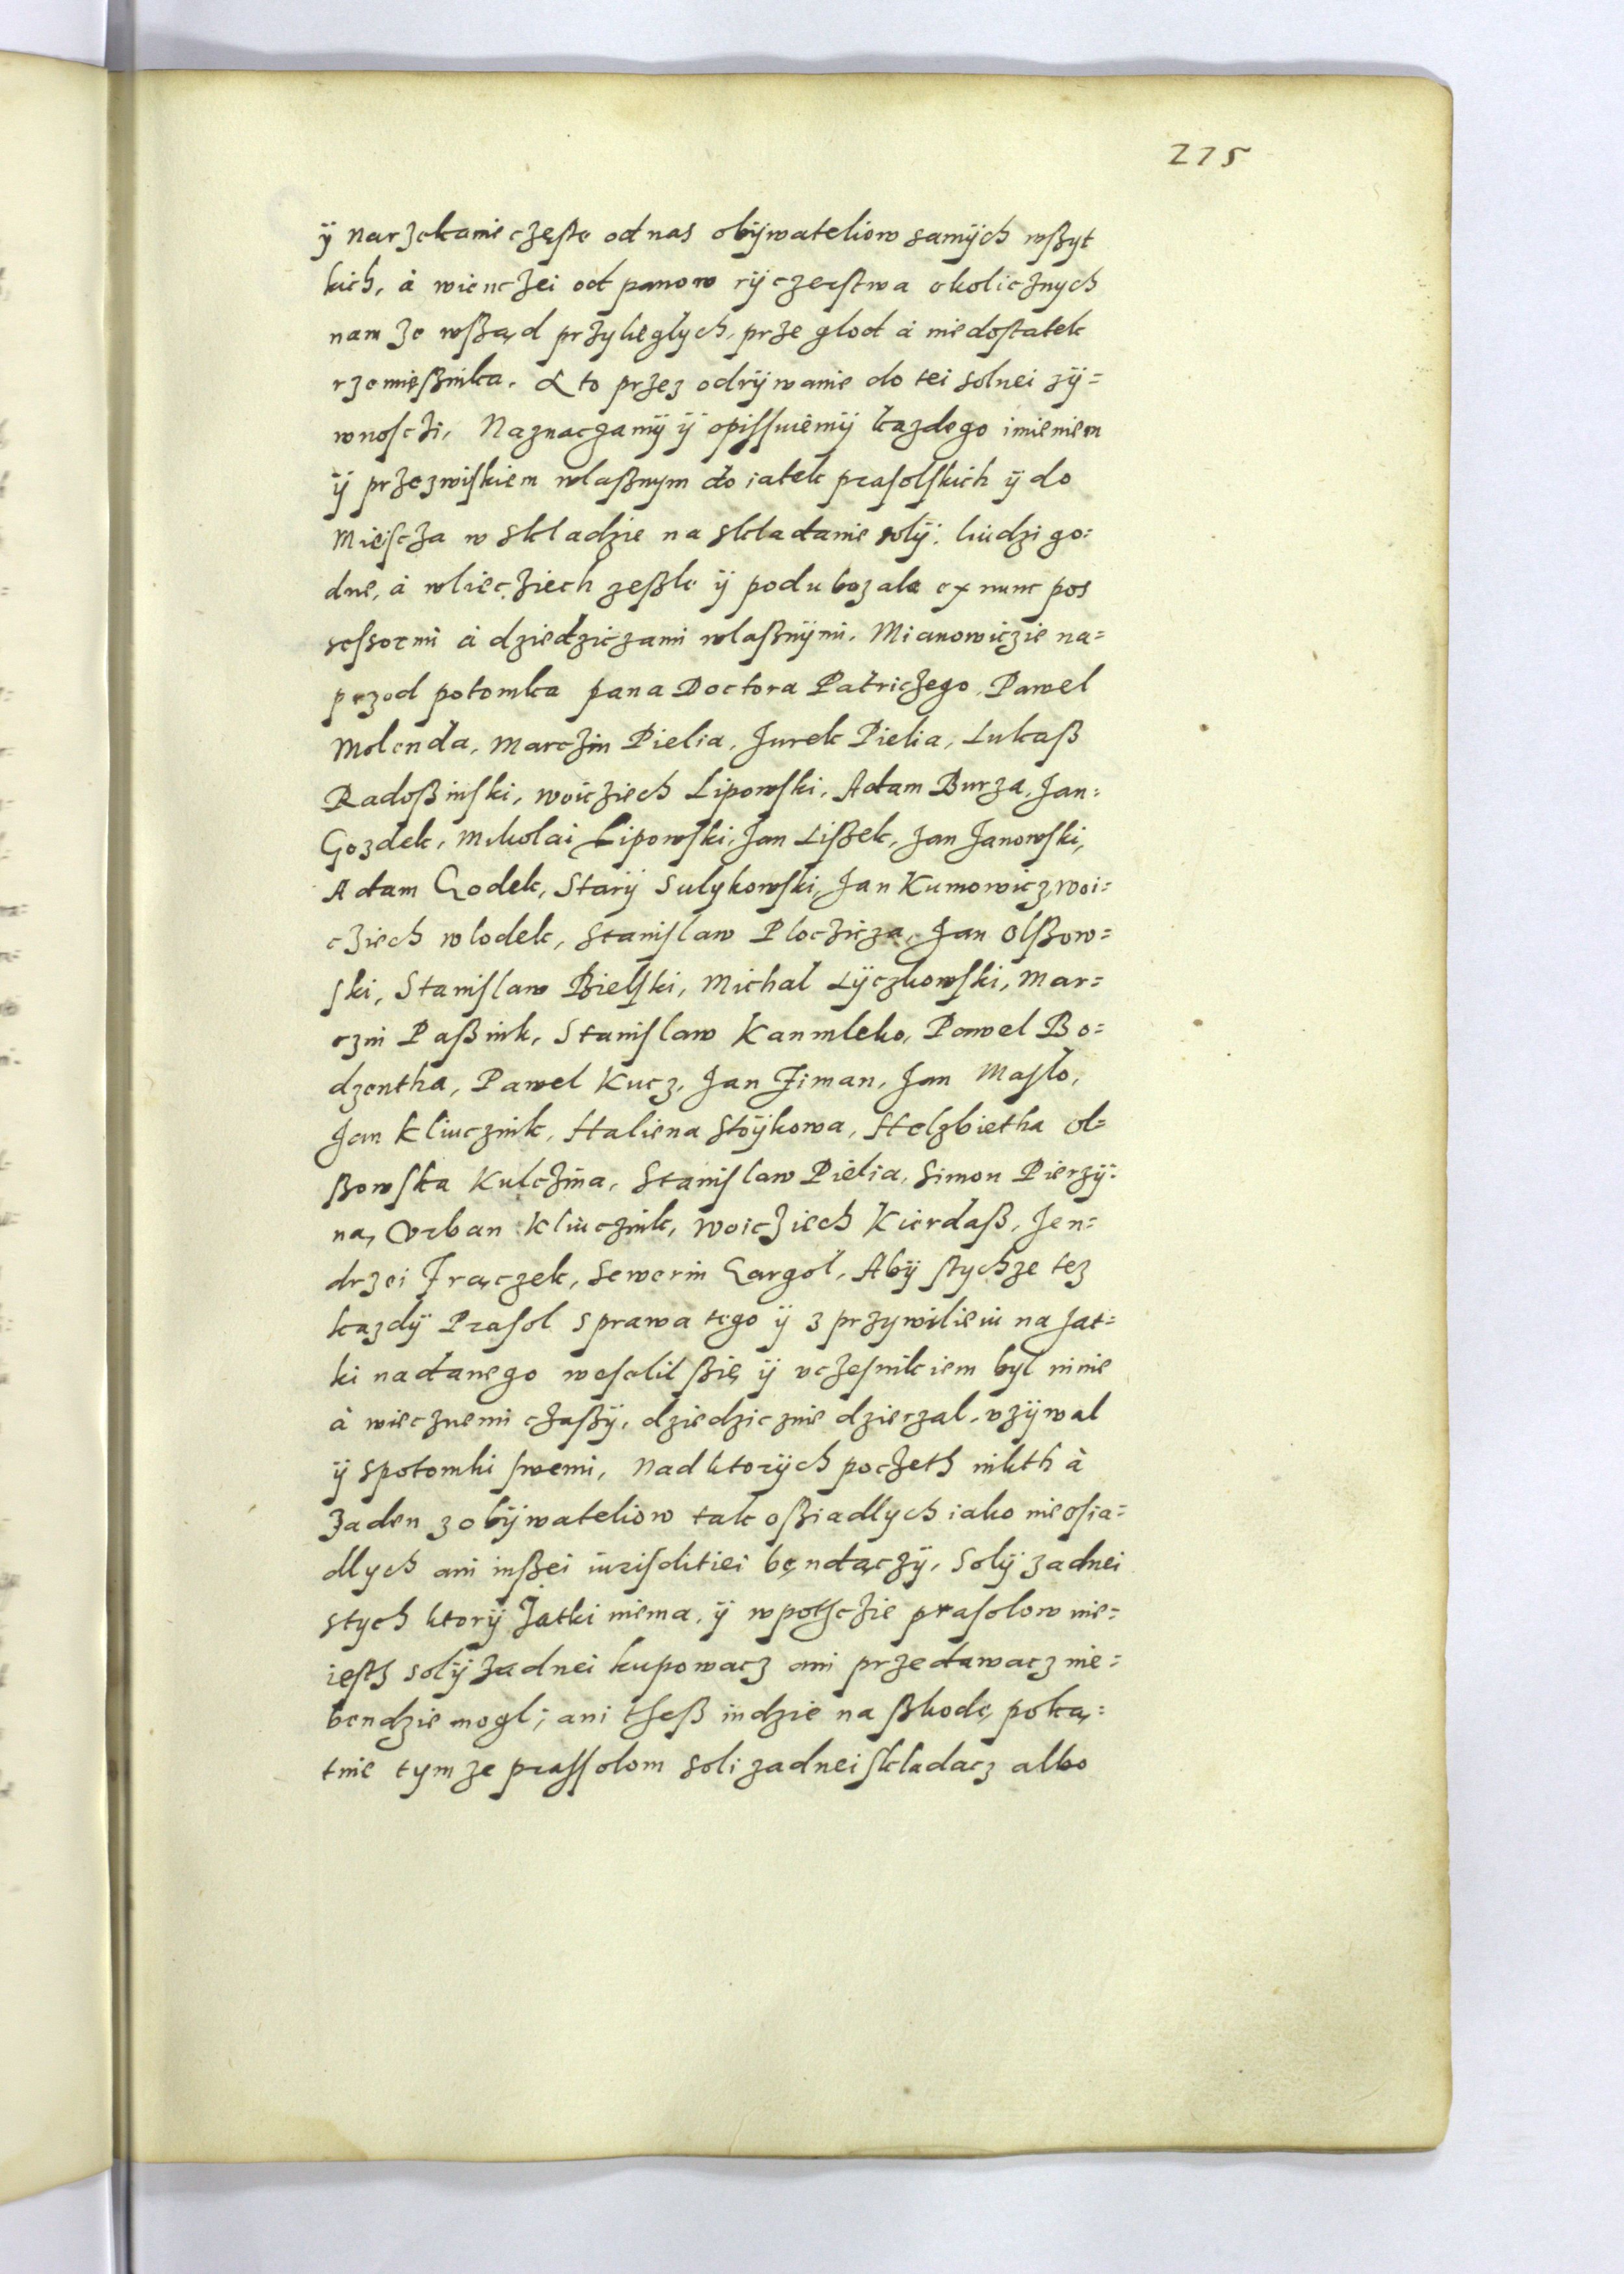 275
ÿ narzekanie częste od nas obÿwateliow samÿch wßyt
kich, à wienczei od panow rÿczerstwa okolicznych
nam ze wßąd przyległych, prze głod à niedostatek
rzemięßnika. A to przez odrÿwanie do tei solnei zÿ=
wnosczi, Naznaczamÿ ÿ opissuiemÿ kazdego imieniem
ÿ przezwiskiem własznym do iatek prasolskich ÿ do
Mieiscza w składzie na składanie solÿ. liudzi go=
dne, à wlieciech zeßłe ÿ podubozałe ex nunc pos
sessormi à dziedziczami własznÿmi. Mianowiczie na=
przod potomka pana Doctora Patriczego, Paweł
Molenda, Marczin Pielia, Jurek Pielia, Lukaß
Radoßinski, Woicziech Lipowski, Adam Burza, Jan=
Gozdek, Mikolai Lipowski, Jan Lißek, Jan Janowski,
Adam Godek, Starÿ Sulykowski, Jan Kumowicz, Woi=
cziech Wlodek, Stanislaw Ploczicza, Jan Olßow=
ski, Stanislaw Bielski, Michał Lÿczkowski, Mar=
czin Paßnik, Stanislaw Kanmleko, Paweł Bo=
dzentha, Pawel Kucz, Jan Ziman, Jan Masło,
Jan Kliucznik, Haliena Stoÿkowa, Helzbietha Ol=
ßowska Kulczina, Stanislaw Pielia, Simon Pierzÿ=
na, Orban Kliucznik, Woicziech Kierdaß, Jen=
drzei Frączek, Sewerin Gargol, Abÿ stychze tez
kazdÿ Prasol sprawa tego ÿ z przywilieiu na Jat=
ki nadanego weselil ßię ÿ uczesnikiem był ninie
à wiecznemi czaßÿ, dziedzicznie dzierzal, uzÿwal
ÿ spotomki swemi, Nad ktorÿch poczeth nikth à
zaden z obÿwateliow tak oßiadlych iako nieosia=
dlych ani inßei iurisditiei będączÿ, Solÿ zadnei
stych ktorÿ Jatki niema, ÿ wpothczie prasolow nie=
iesth solÿ zadnei kupowacz ani przedawacz nie=
bendzie mogl; ani theß indzie na ßkodę poką=
tnie tymze prassolom soli zadnei składacz albo